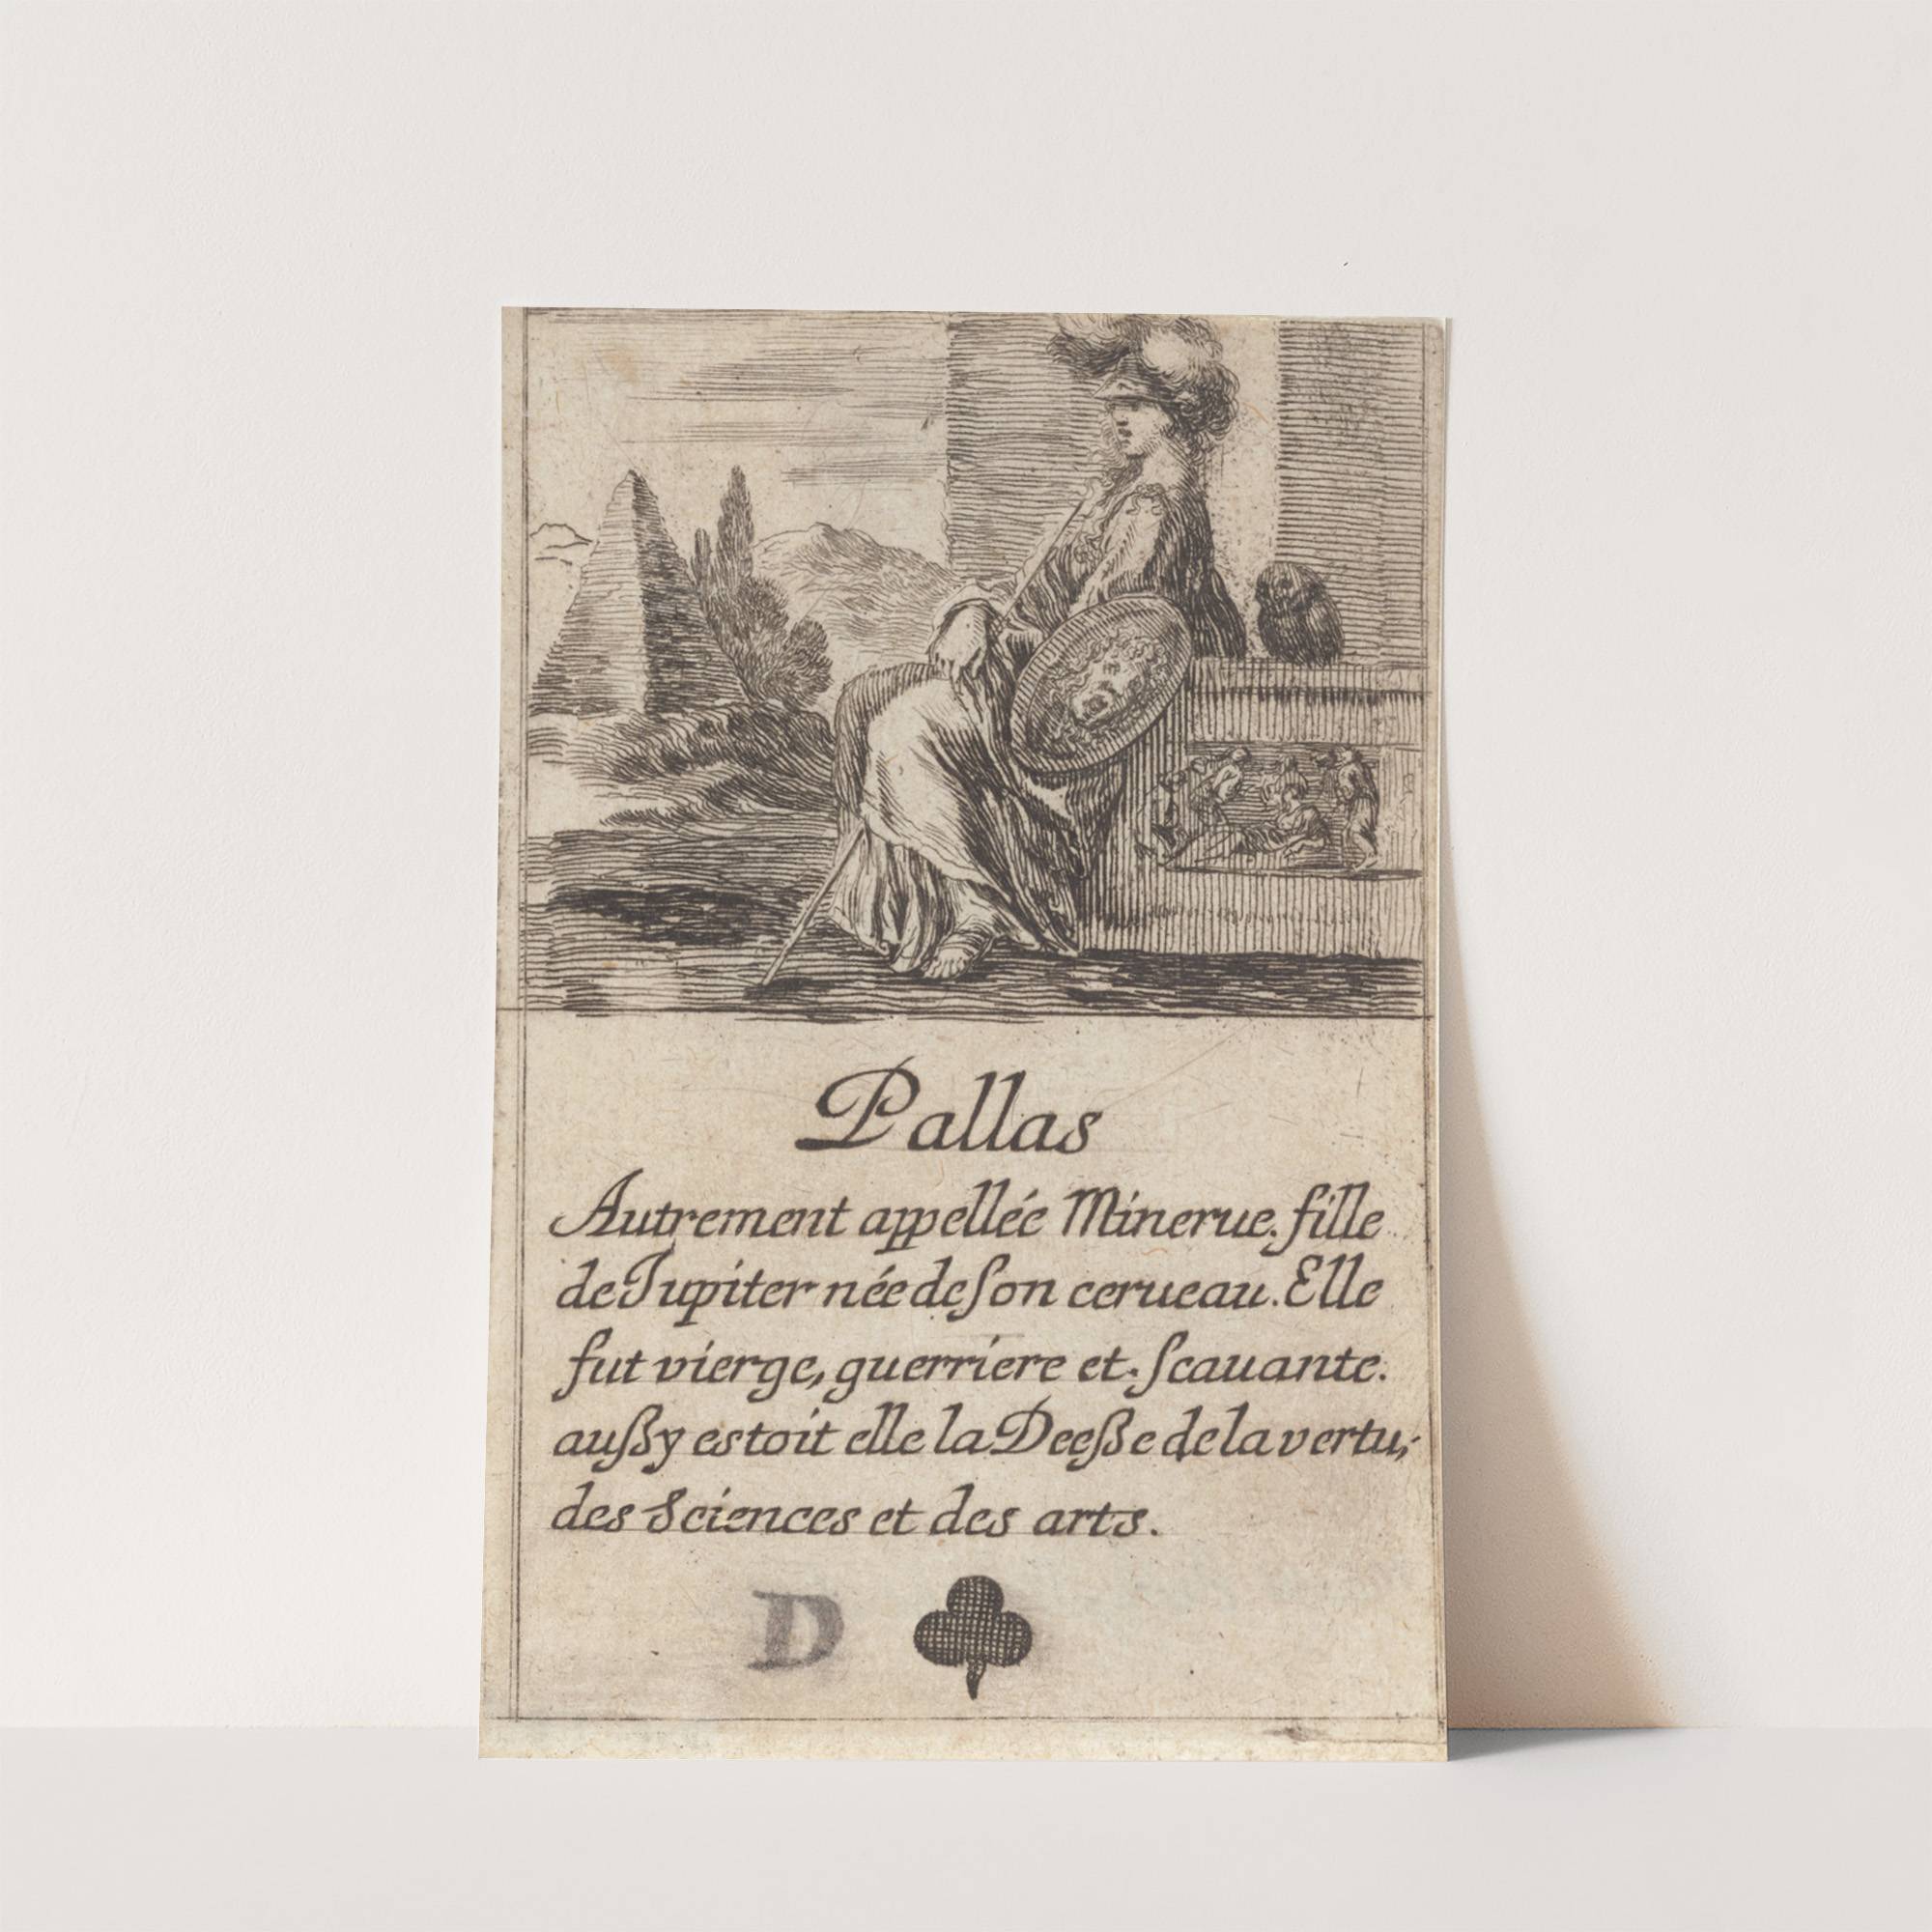 Pallas
Autrement appellée Minerue. fille
de Iupiter née de son cerueau. Elle
fut vierge, guerriere et. scauante.
außy estoit elle la Deeße de la vertu;
des Sciences et des arts.
D